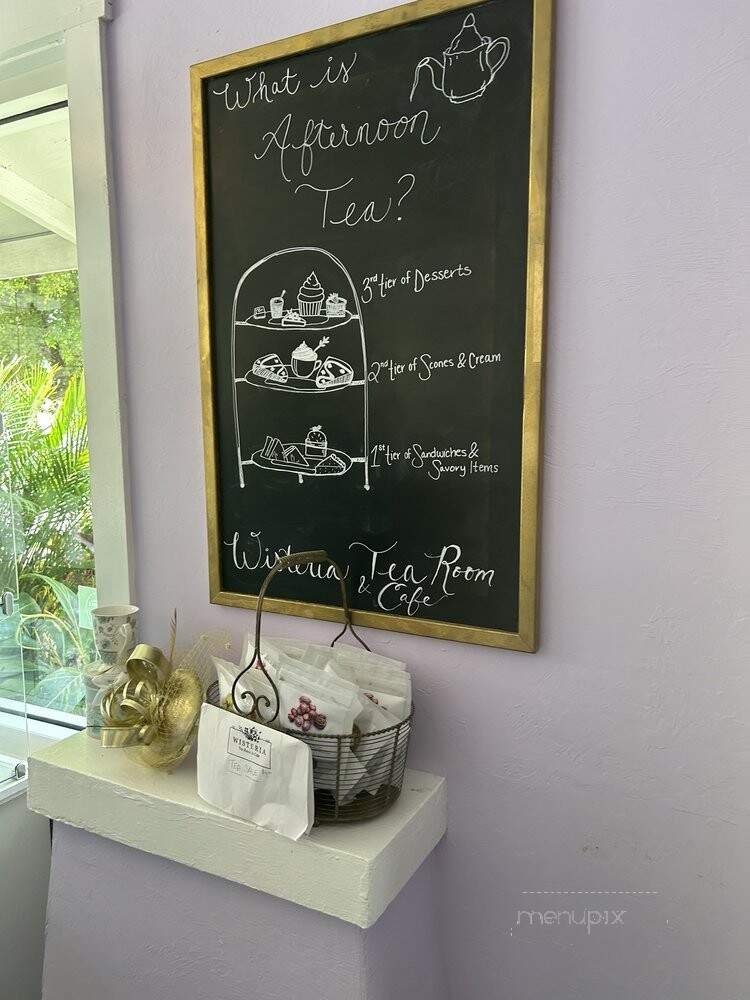 What is
Afternoon
Tea?
3rd tier of Desserts
2nd tier of Scones & Cream
1st tier of Sandwiches &
Savory Items
Wisteria Tea Room
& Cafe
WISTERIA
menupix